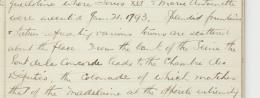 guillotine where Louis XVI & Marie Antoinette
were executed Jan. 21. 1793. Splendid fountains
& statues representing various towns are scattered
about the place. From the bank of the Seine the
Pont de la Concorde leads to the Chambre des
Deputés, the colonade of which matches
that of the Madeleine at the opposite extremity